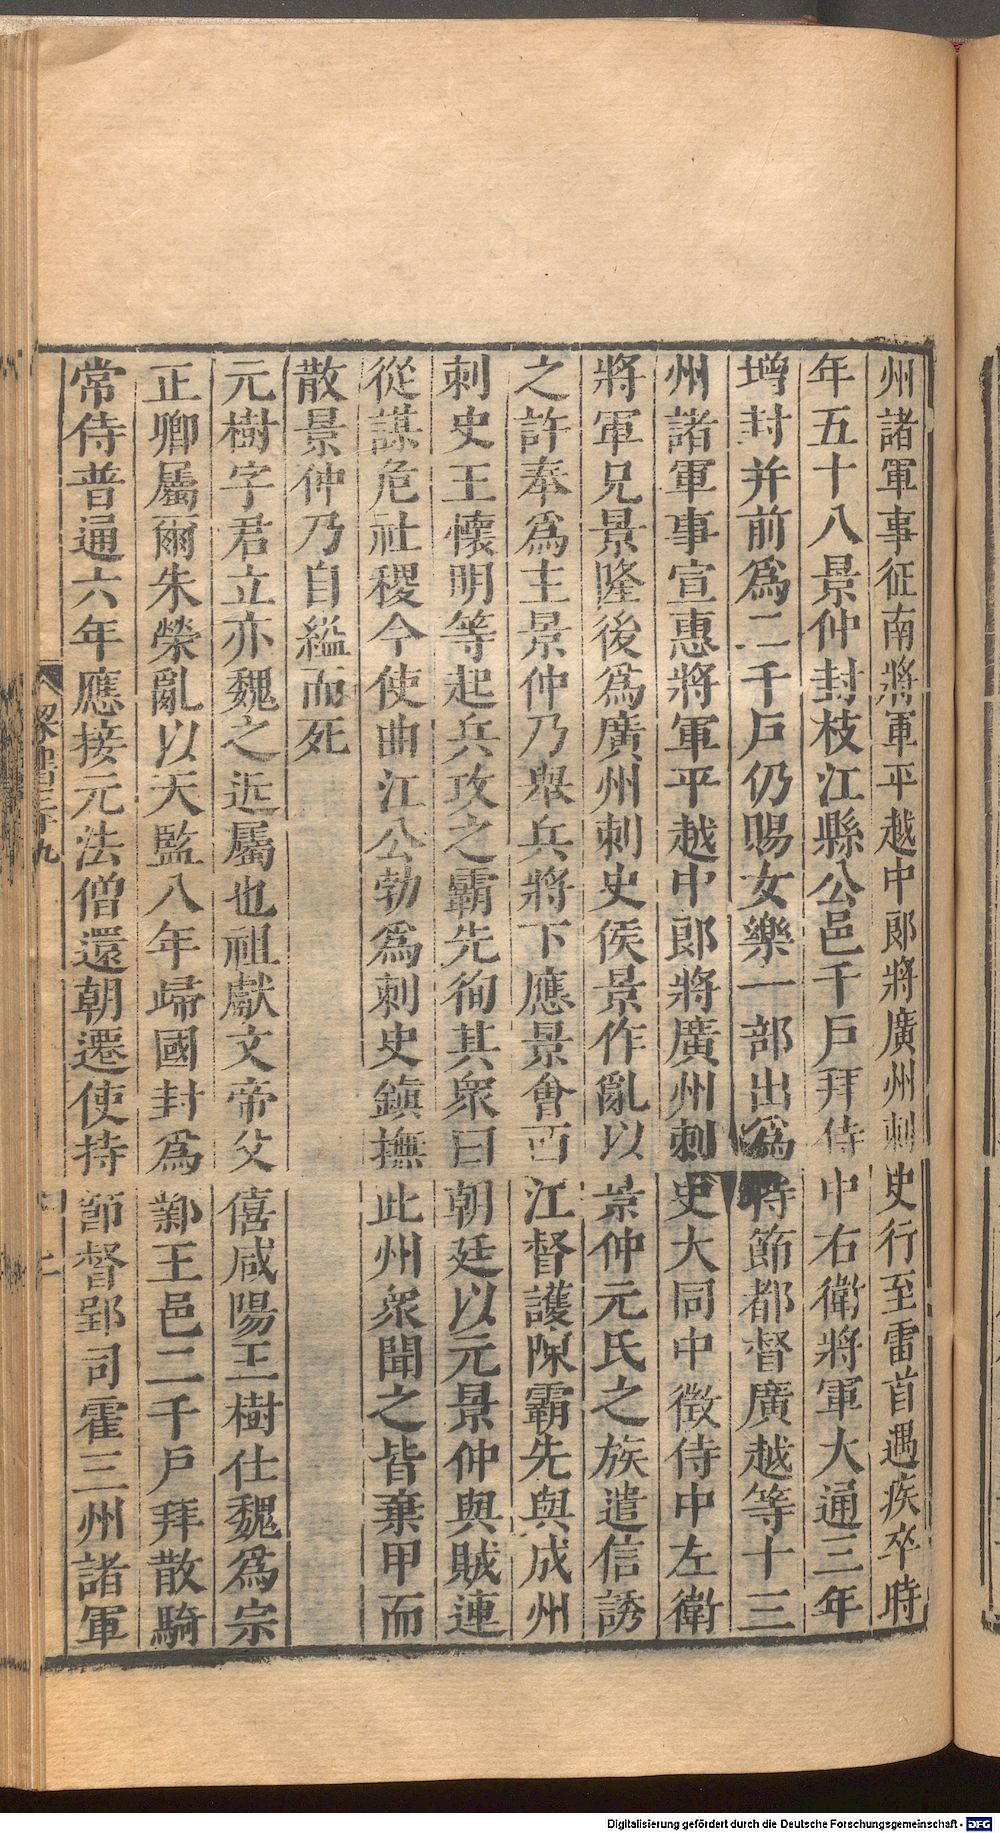 州諸軍事征南將軍平越中郎將廣州刺史行至雷首遇疾卒時
年五十八景仲封枝江縣公邑千戶拜侍中右衛將軍大通三年
增封并前爲二千戶仍賜女樂一部出爲持節都督廣越等十三
州諸軍事宣惠將軍平越中郎將廣州刺史大同中徵侍中左衛
將軍兄景隆後爲廣州刺史侯景作亂以景仲元氏之族遣信誘
之許奉爲主景仲乃舉兵將下應景會西江督護陳霸先與成州
刺史王懷明等起兵攻之霸先徇其衆曰朝廷以元景仲與賊連
從謀危社稷今使曲江公勃爲刺史鎮撫此州衆聞之皆棄甲而
散景仲乃自縊而死
元樹字君立亦魏之近屬也祖獻文帝父僖咸陽王樹仕魏爲宗
正卿屬爾朱榮亂以天監八年歸國封爲鄴王邑二千戶拜散騎
常侍普通六年應接元法僧還朝遷使持節督郢司霍三州諸軍
梁書三十九
Digitalisierung gefördert durch die Deutsche Forschungsgemeinschaft - DFG